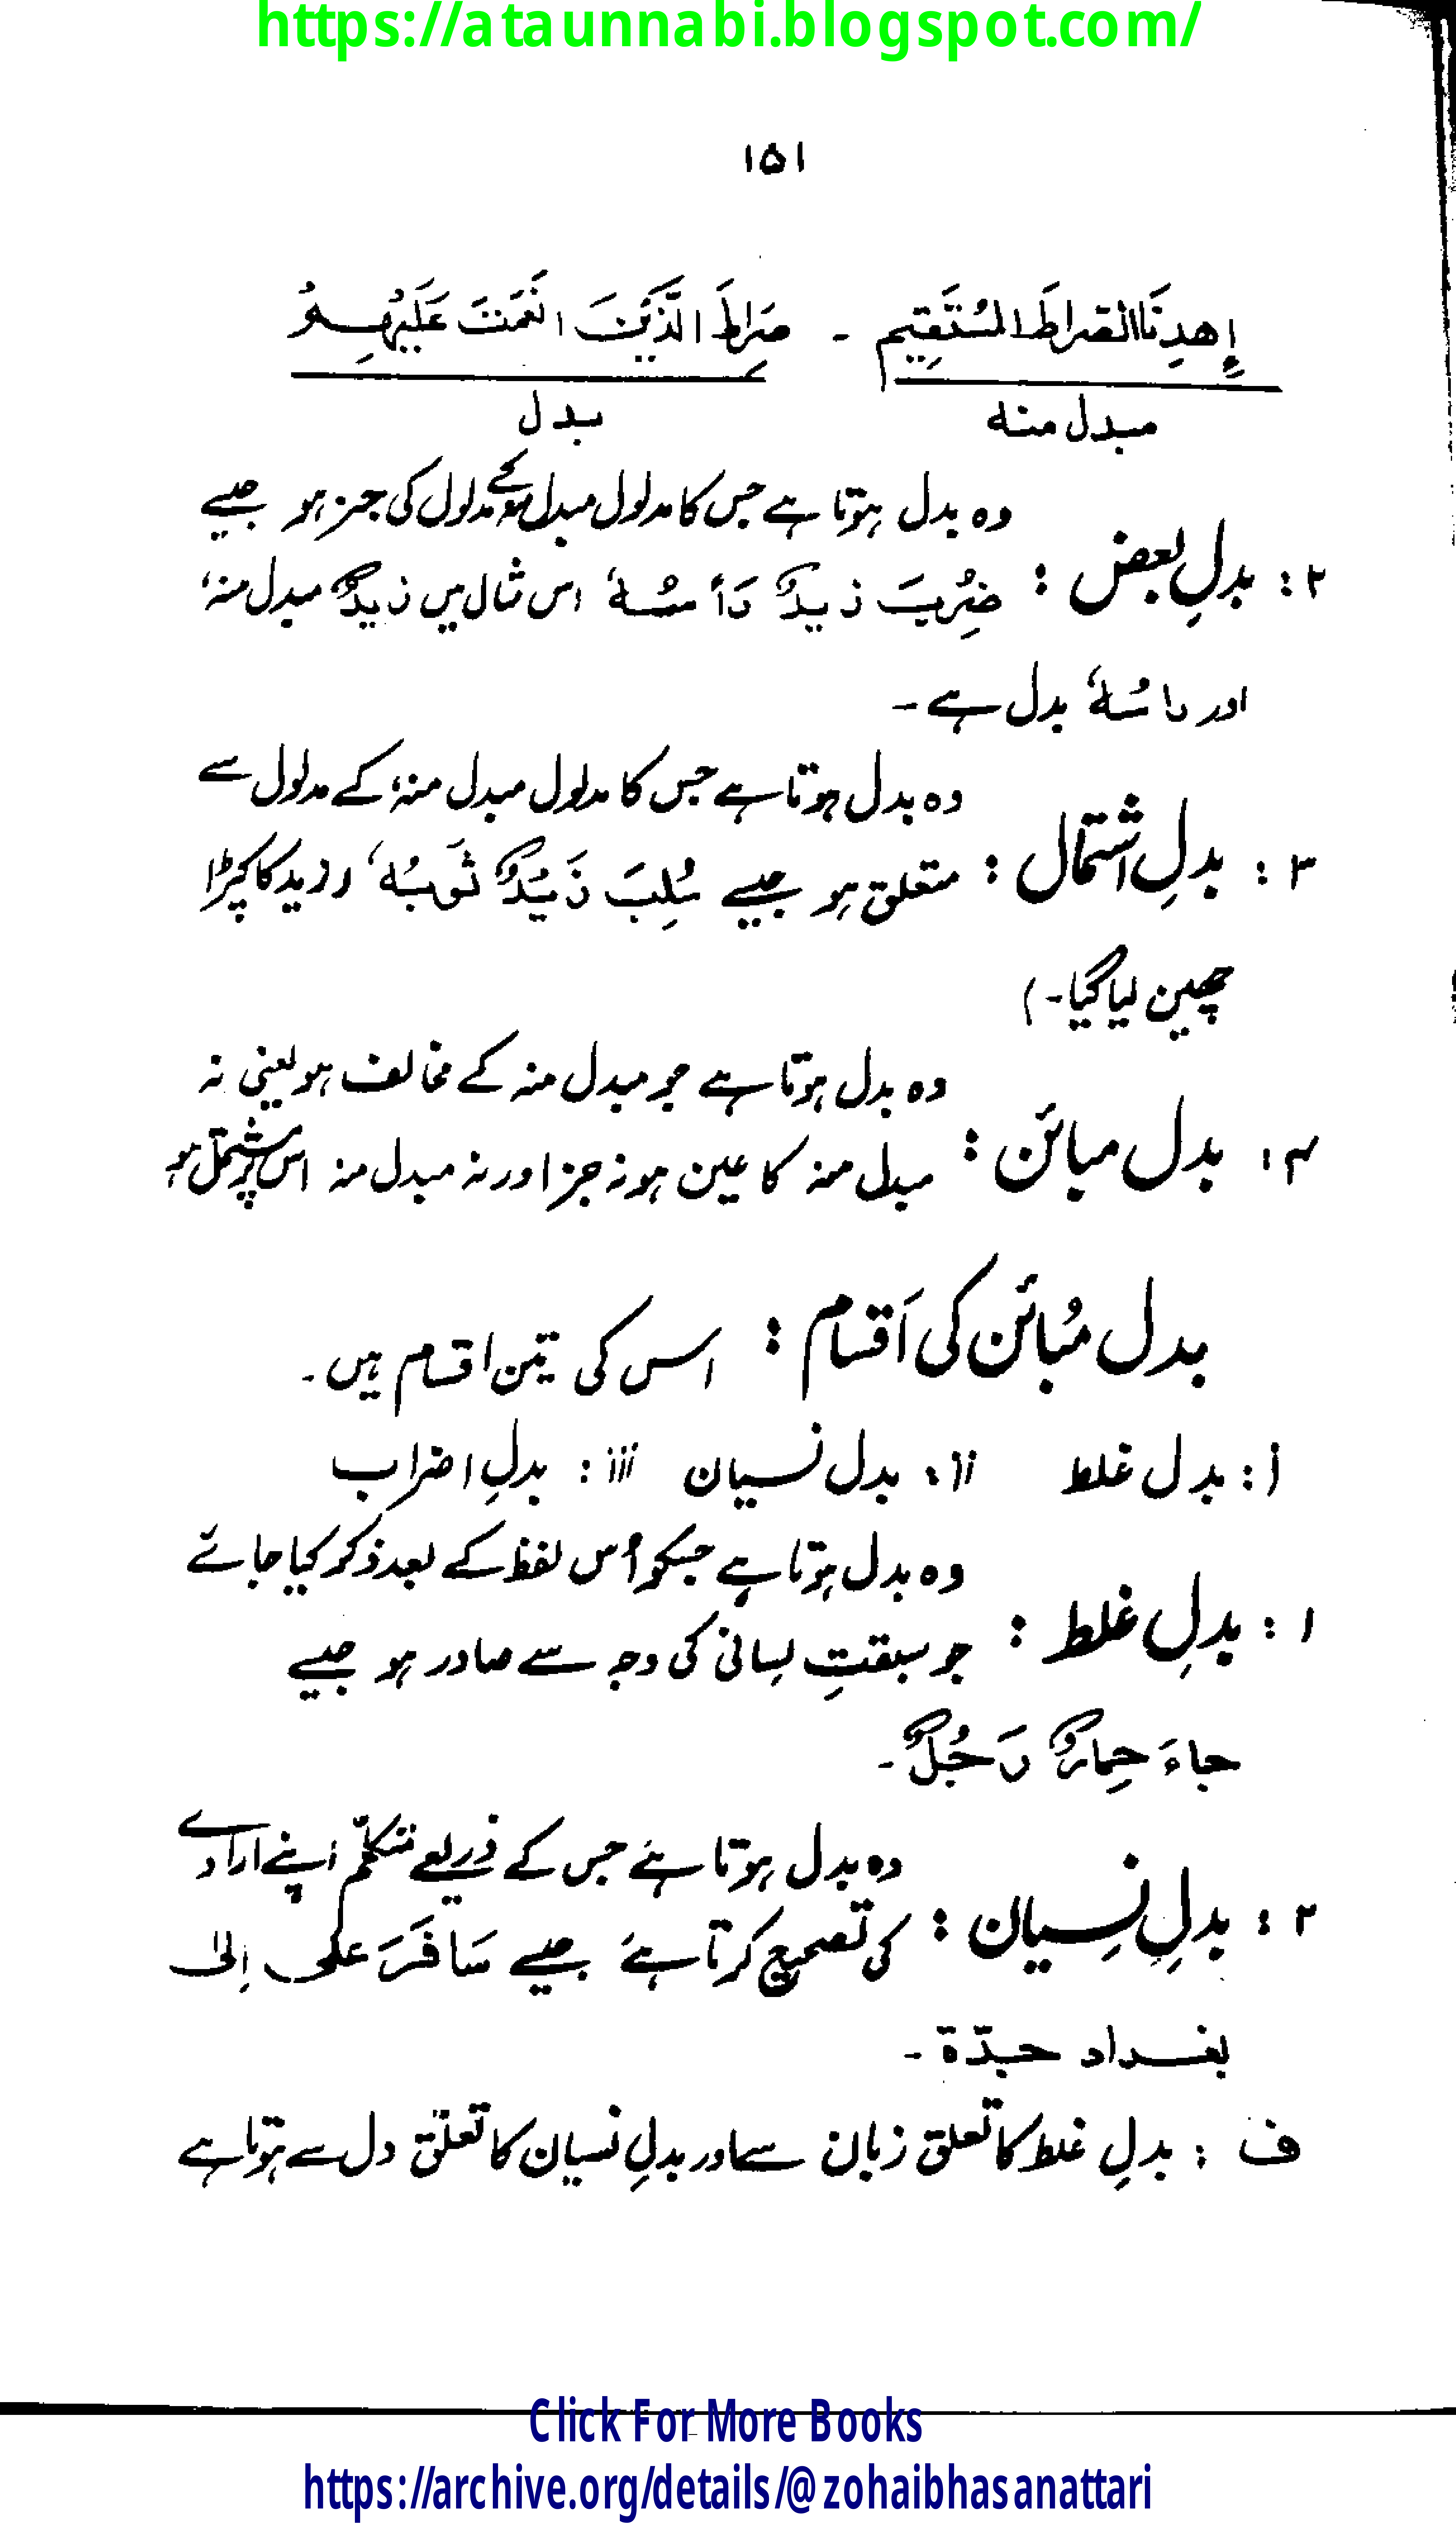 https://ataunnabi.blogspot.com/
۱۵۱
إِهدِنَا الصِّرَاطَ الْمُسْتَقِيم ۔ صِرَاطَ الَّذِيْنَ انْعَمْتَ عَلَيْهِمْ
مبدل منه بدل
وہ بدل ہوتا ہے جس کا مدلول مبدل منہ کے مدلول کی جز ہو جیسے
۲: بدلِ بعض : ضُرِبَ زيدٌ رَأسُهٗ اس مثال میں زیدٌ مبدل منہ،
اور راسُهٗ بدل ہے۔
وہ بدل ہوتا ہے جس کا مدلول مبدل منہ، کے مدلول سے
۳: بدلِ اشتمال : متعلق ہو جیسے سُلِبَ زَيْدٌ ثَوبُهٗ (زید کا کپڑا
چھین لیا گیا۔)
وہ بدل ہوتا ہے جو مبدل منہ کے مخالف ہو یعنی نہ
۴: بدل مبائن : مبدل منہ کا عین ہو نہ جز اور نہ مبدل منہ اس پر مشتمل ہو
بدل مُبائن کی اَقسام : اس کی تین اقسام ہیں۔
i: بدل غلط ii: بدل نسیان iii: بدلِ اضراب
وہ بدل ہوتا ہے جسکو اُس لفظ کے بعد ذکر کیا جائے
۱: بدلِ غلط : جو سبقتِ لسانی کی وجہ سے صادر ہو جیسے
جاءَ حِمارٌ رَجُلٌ۔
وہ بدل ہوتا ہے جس کے ذریعے متکلّم اپنے ارادے
۲: بدلِ نِسیان : کی تصحیح کرتا ہے جیسے سَافَرَ علی اِلیٰ
بغداد جدّة ۔
ف : بدلِ غلط کا تعلق زبان سے اور بدلِ نسیان کا تعلّق دل سے ہوتا ہے
Click For More Books
https://archive.org/details/@zohaibhasanattari